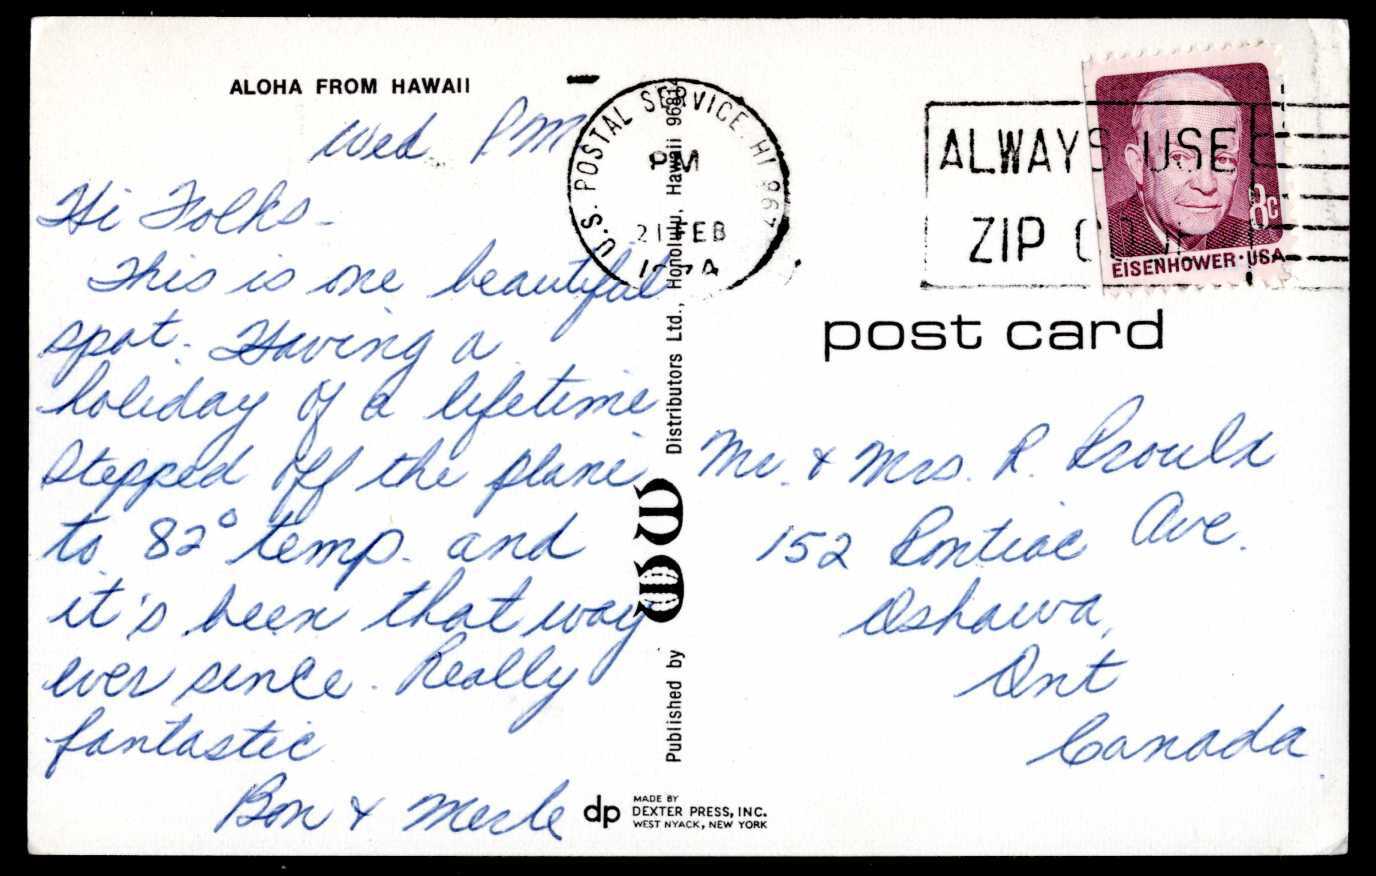 ALOHA FROM HAWAII
Wed. PM
Hi Folks -
This is one beautiful
spot. Having a
holiday of a lifetime
Stepped off the plane
to 82° temp. and
it's been that way
ever since. Really
fantastic
Bon & Merle
U.S. POSTAL SERVICE, HI 967
PM
21 FEB
Published by
Distributors Ltd., Honolulu, Hawaii 96814
dp
MADE BY
DEXTER PRESS, INC.
WEST NYACK, NEW YORK
ALWAYS USE
ZIP CODE
8c
EISENHOWER·USA
post card
Mr. & Mrs. R. Proulx
152 Pontiac Ave.
Oshawa,
Ont
Canada